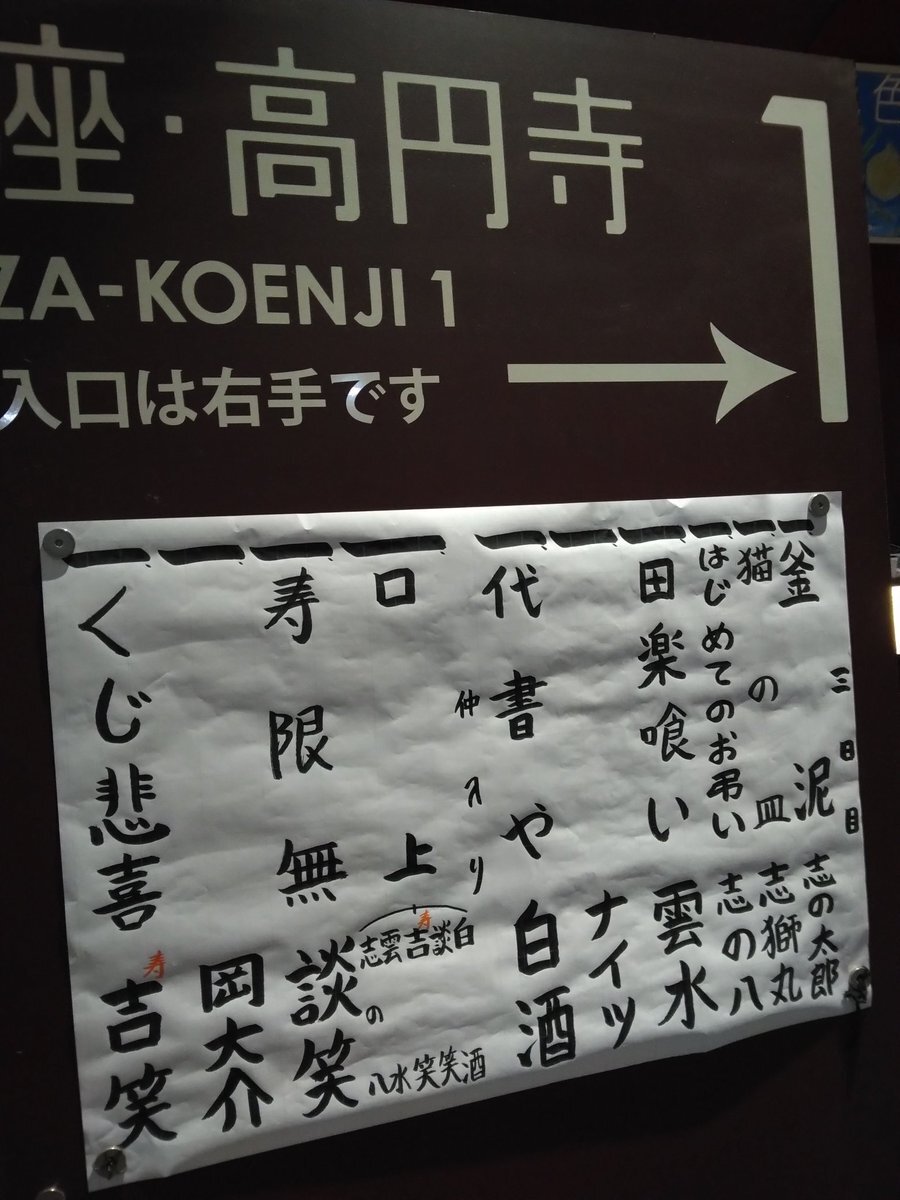 座・高円寺1
ZA-KOENJI 1
入口は右手です
色
三日目
一 釜泥 志の太郎
一 猫の皿 志獅丸
一 はじめてのお弔い 志の八
一 田楽喰い 雲水
一 ナイツ
一 代書や 白酒
仲入り
一 口上
白酒
談笑
寿 吉笑
雲水
志の八
一 寿限無 談笑
一 岡大介
一 くじ悲喜 寿 吉笑